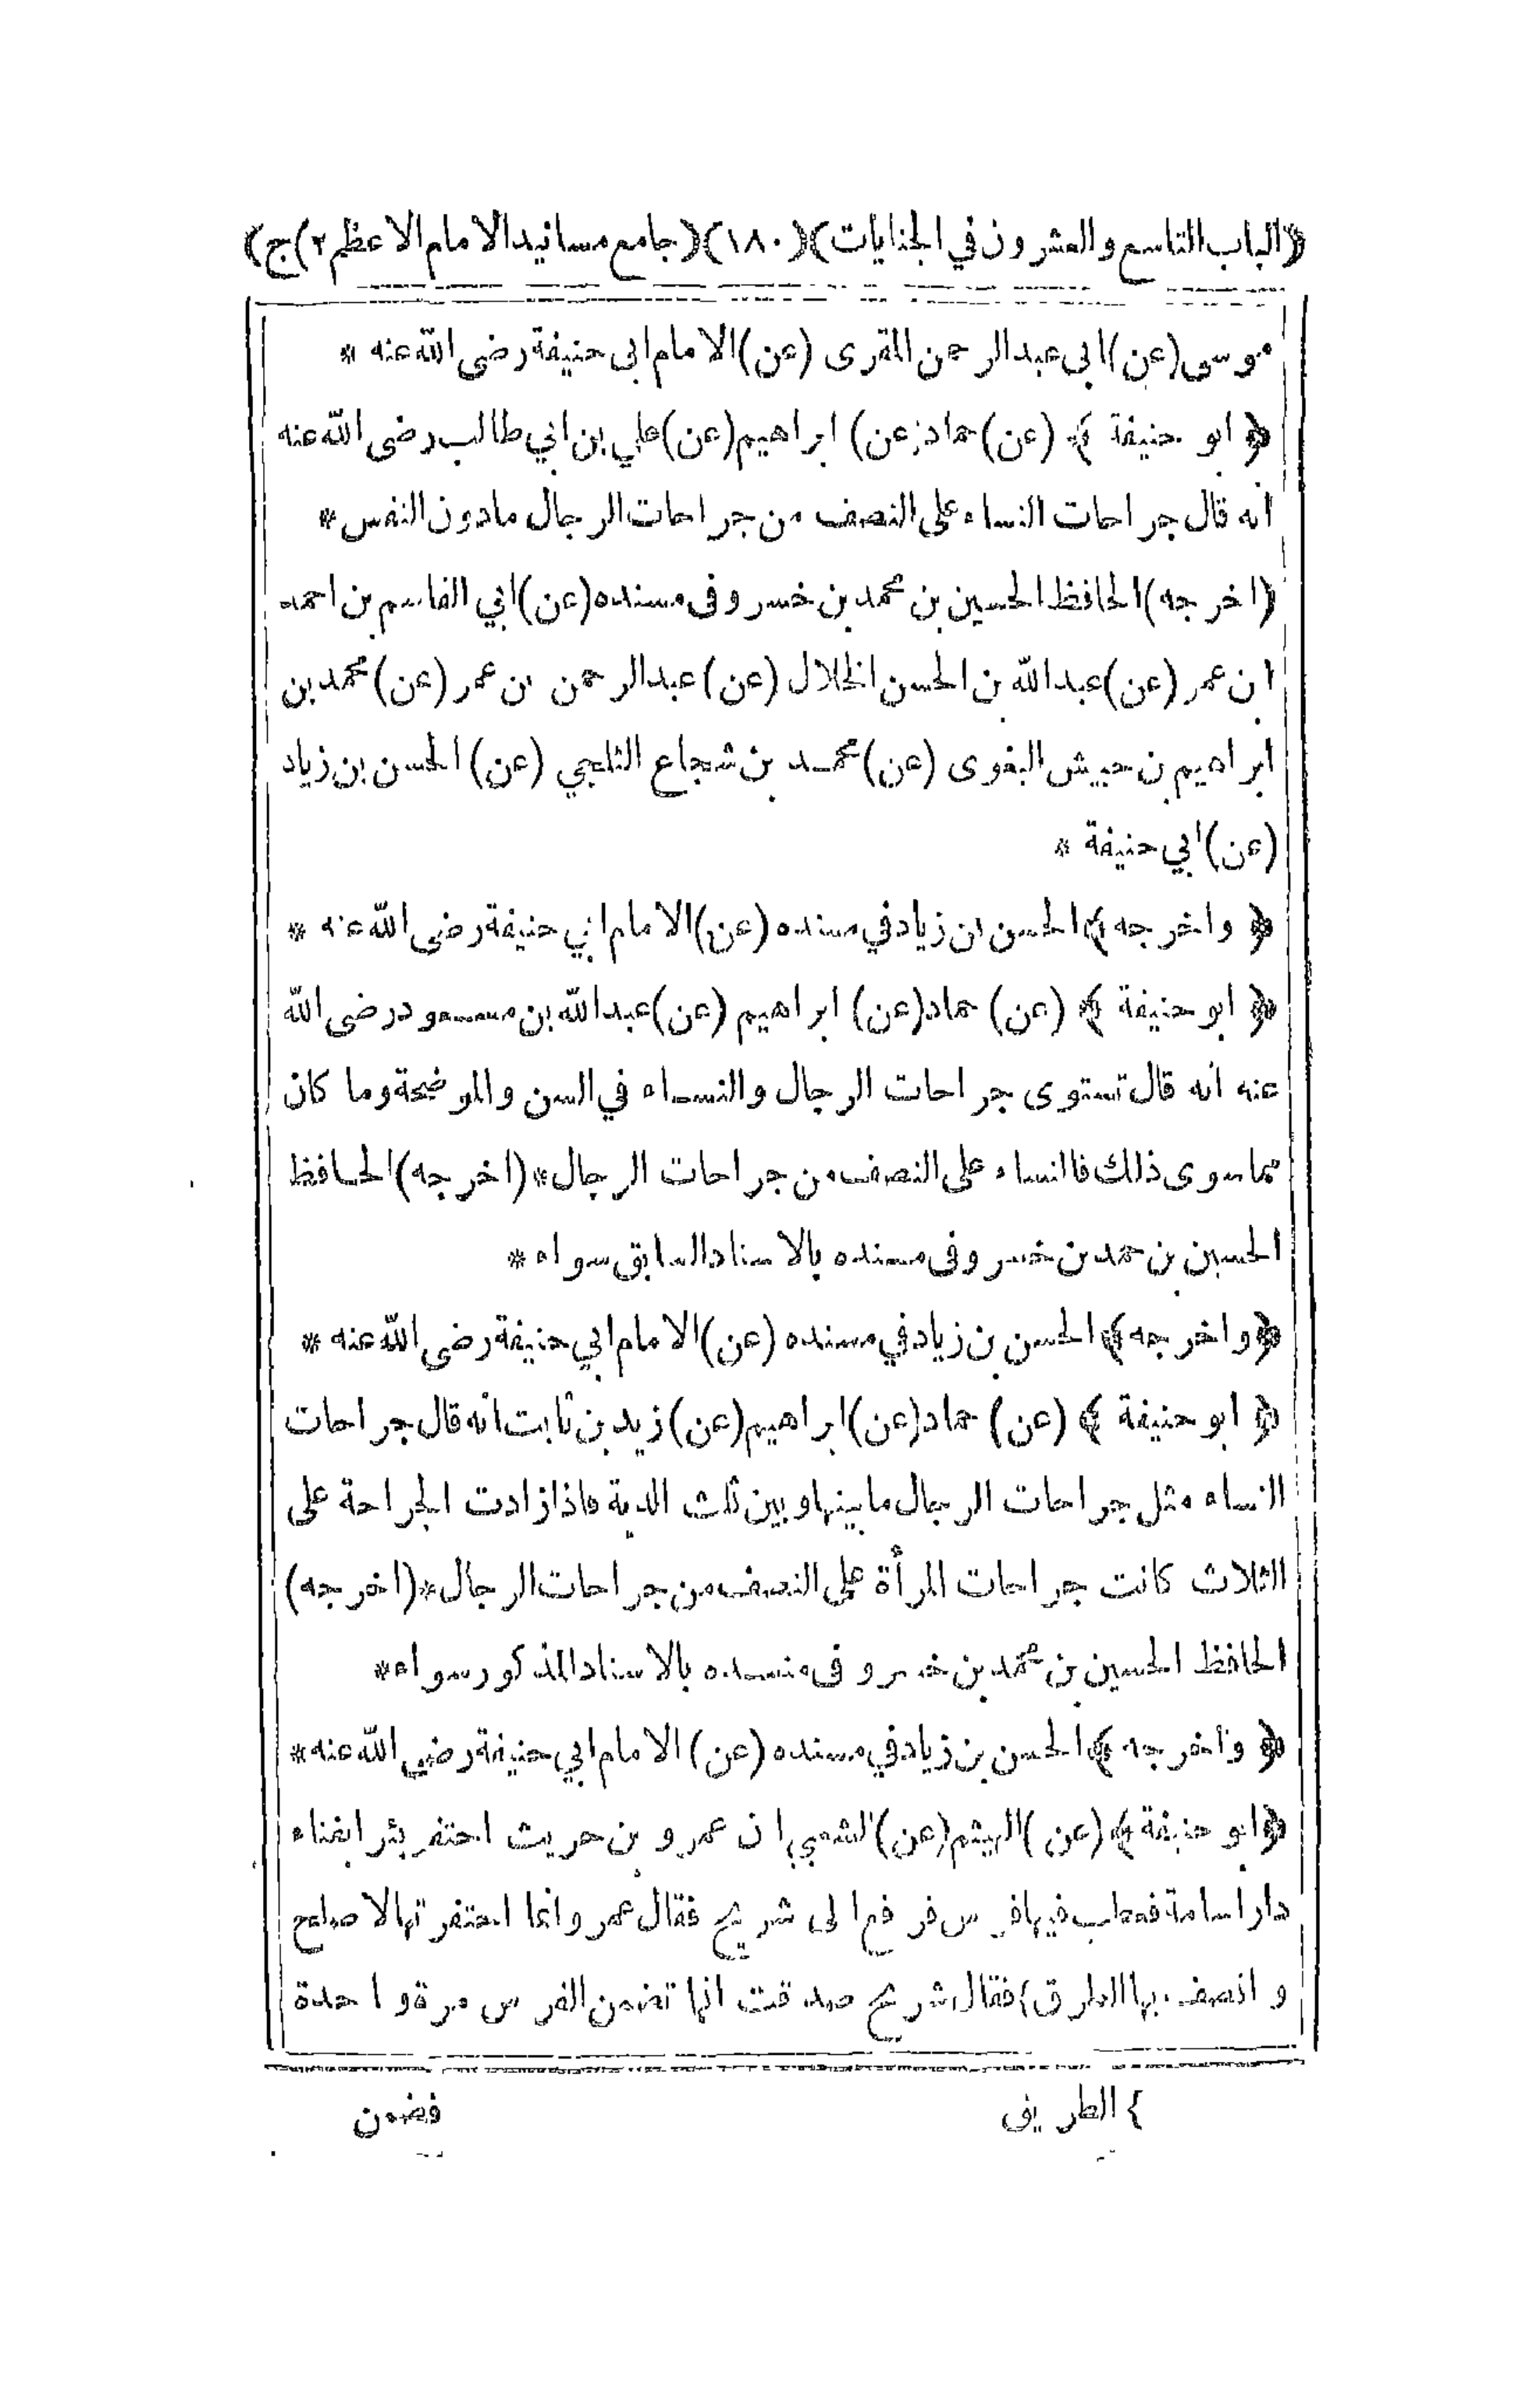 ﴿الباب التاسع والعشرون في الجنايات﴾ (١٨٠) ﴿جامع مسانيد الامام الاعظم ٢) ج﴾
موسى (عن) ابى عبدالرحمن المقرى (عن) الامام ابى حنيفة رضى الله عنه *
﴿ ابو حنيفة ﴾ (عن) حماد (عن) ابراهيم (عن) علي بن ابي طالب رضى الله عنه
انه قال جراحات النساء على النصف من جراحات الرجال مادون النفس *
(اخرجه) الحافظ الحسين بن محمد بن خسرو فى مسنده (عن) ابي القاسم بن احمد
ابن عمر (عن) عبدالله بن الحسن الخلال (عن) عبدالرحمن بن عمر (عن) محمد بن
ابراهيم بن حبيش البغوى (عن) محمد بن شجاع الثلجي (عن) الحسن بن زياد
(عن) ابي حنيفة *
﴿ واخرجه ﴾ الحسن بن زياد في مسنده (عن) الامام ابي حنيفة رضى الله عنه *
﴿ ابو حنيفة ﴾ (عن) حماد (عن) ابراهيم (عن) عبدالله بن مسعود رضى الله
عنه انه قال تستوى جراحات الرجال والنساء في السن والموضحة وما كان
مما سوى ذلك فالنساء على النصف من جراحات الرجال * (اخرجه) الحافظ
الحسين بن محمد بن خسرو فى مسنده بالاسناد السابق سواء *
﴿ واخرجه ﴾ الحسن بن زياد في مسنده (عن) الامام ابي حنيفة رضى الله عنه *
﴿ ابو حنيفة ﴾ (عن) حماد (عن) ابراهيم (عن) زيد بن ثابت انه قال جراحات
النساء مثل جراحات الرجال ما بينها وبين ثلث الدية فاذا زادت الجراحة على
الثلاث كانت جراحات المرأة على النصف من جراحات الرجال * (اخرجه)
الحافظ الحسين بن محمد بن خسرو فى منسده بالاسناد المذكور سواء *
﴿ واخرجه ﴾ الحسن بن زياد في مسنده (عن) الامام ابي حنيفة رضى الله عنه *
﴿ ابو حنيفة ﴾ (عن) الهيثم (عن) الشعبي ان عمرو بن حريث احتفر بئرا بفناء
دار اسامة فعطب فيها فرس فرفع الى شريح فقال عمرو انما احتفرتها لاصلح
وانصف بها الطرق} فقال شريح صدقت انما تضمن الفرس مرة واحدة
} الطريق
فضمن